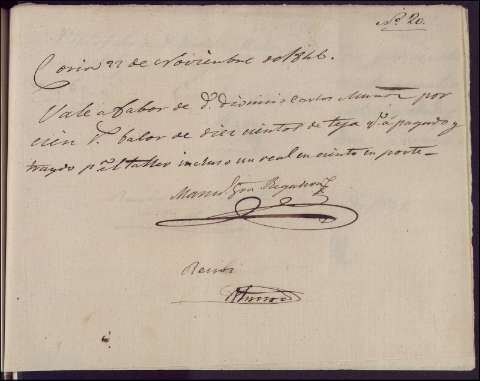 Nº 20.
Coria 22 de Noviembre de 1846.
Vale a fabor de Dn. Dionicio Carlos Muñoz por
cien rs. balor de diez cientos de teja qe. á pagado y
traydo pa. el taller incluso un real en ciento en porte
Manuel
Recibi
Muñoz